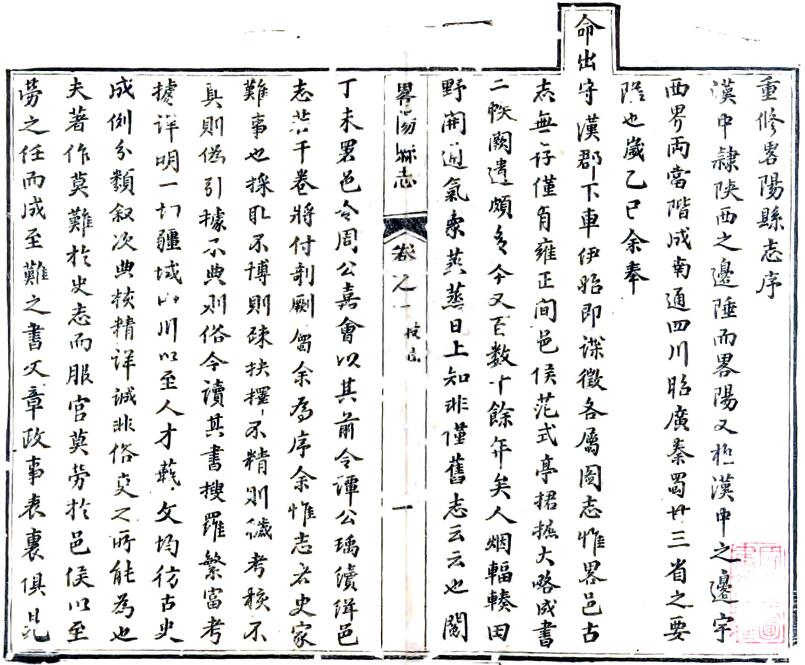 重修畧陽縣志序
漢中隷陝西之邊陲而畧陽又極漢中之邊宇
西界兩當階成南通四川昭廣秦蜀廿三省之要
隘也歲乙巳余奉
命出守漢郡下車伊始即諜徵各屬圖志惟畧邑古
志無存僅有雍正間邑侯范式亭捃摭大略成書
二帙闕遺頗多今又百數十餘年矣人烟輻輳田
野開通氣象蒸蒸日上知非僅舊志云云也閱
畧陽縣志
卷之一
一
丁未畧邑令周公嘉會以其前令譚公瑀續緝邑
志若干卷將付剞劂屬余為序余惟志者史家
難事也採取不博則疎抉擇不精則穢考核不
真則偽引據不典則俗今讀其書搜羅繁富考
據詳明一切疆域山川以至人才藝文均仿古史
成例分類叙次典核精詳誠非俗吏之所能為也
夫著作莫難於史志而服官莫勞於邑侯以至
勞之任而成至難之書文章政事表裏俱見